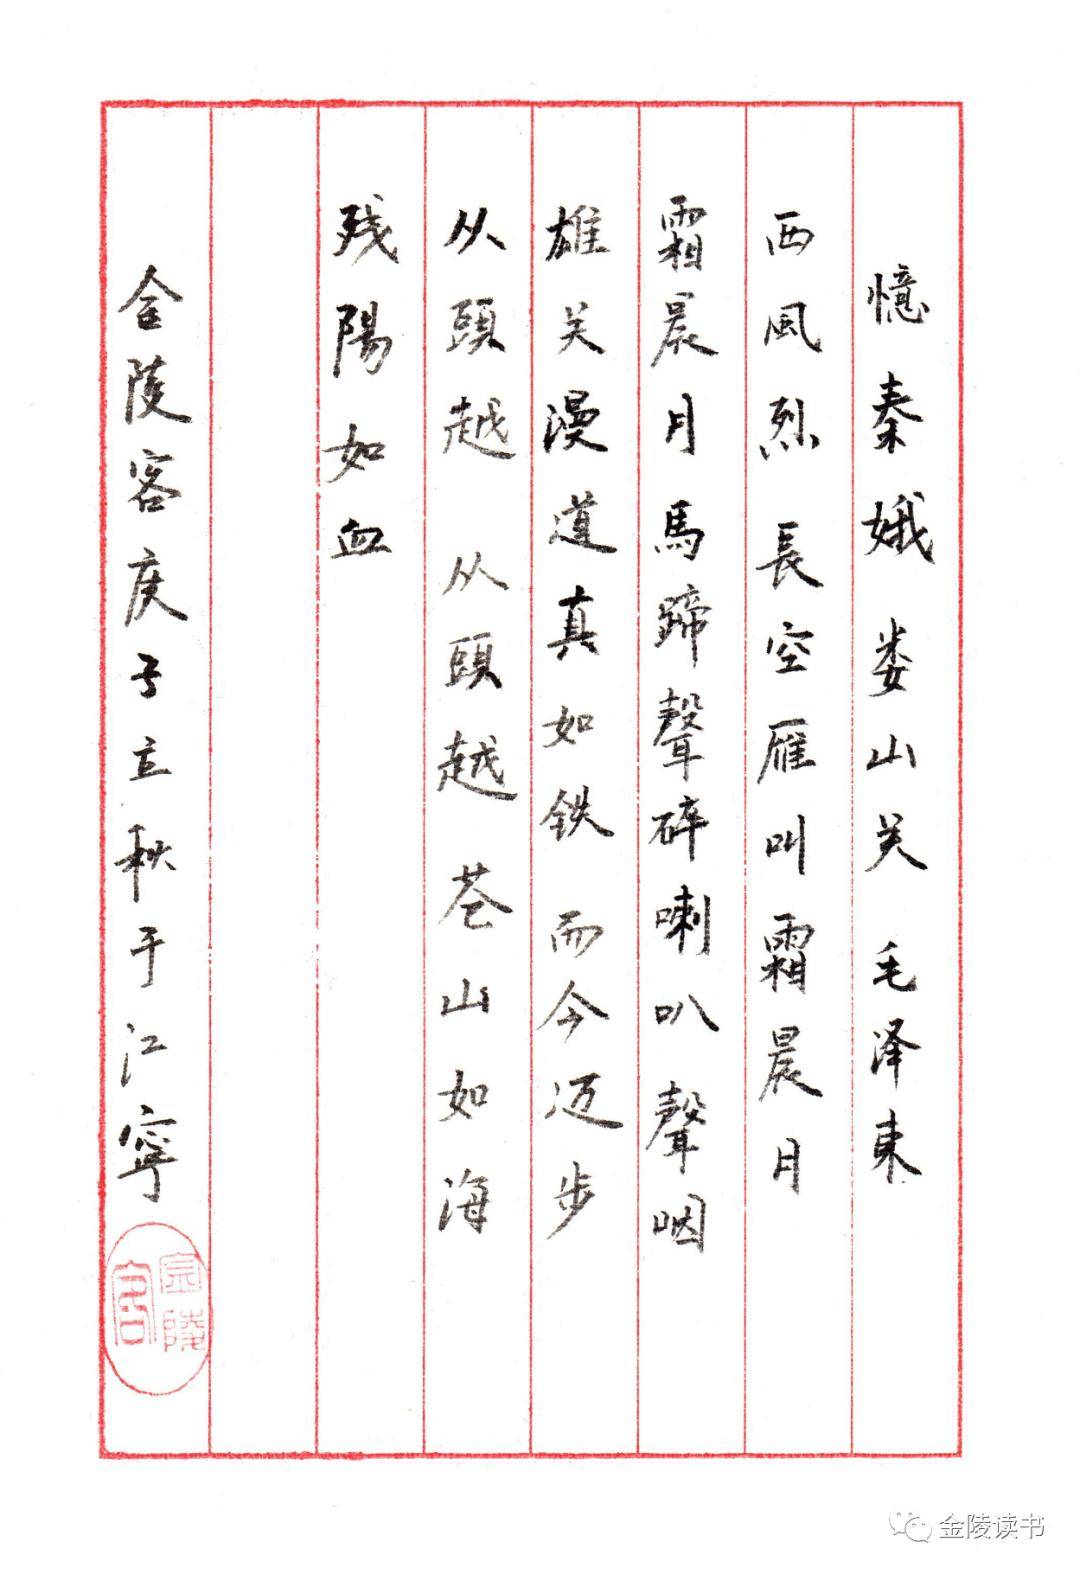 憶秦娥 娄山关 毛泽東
西風烈 長空雁叫霜晨月
霜晨月 馬蹄聲碎 喇叭聲咽
雄关漫道真如铁 而今迈步
从頭越 从頭越 苍山如海
残陽如血
金陵客庚子立秋于江寧
金陵客
金陵读书